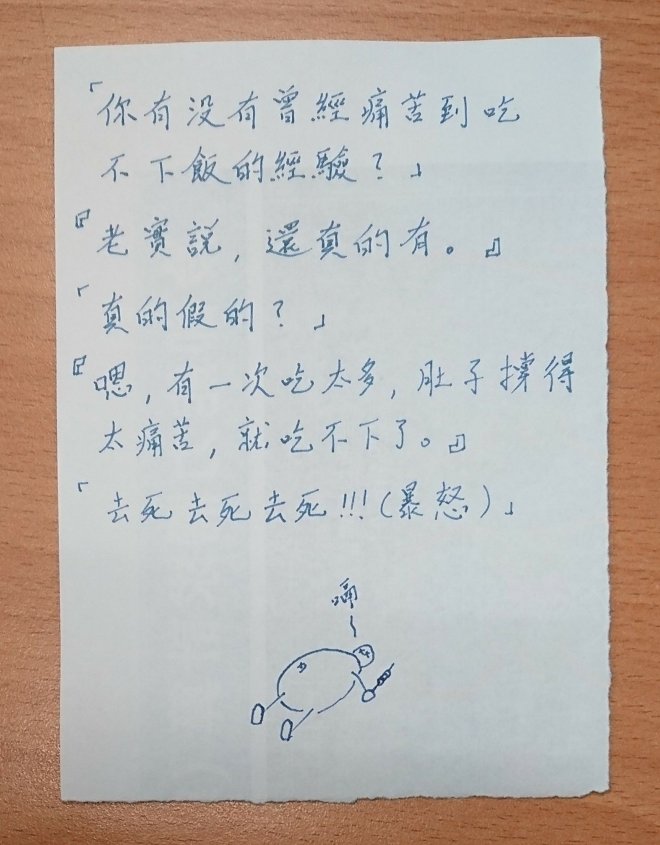 「你有没有曾經痛苦到吃
不下飯的經驗？」
『老實說，還真的有。』
「真的假的？」
『嗯，有一次吃太多，肚子撐得
太痛苦，就吃不下了。』
「去死去死去死!!!(暴怒)」
嗝